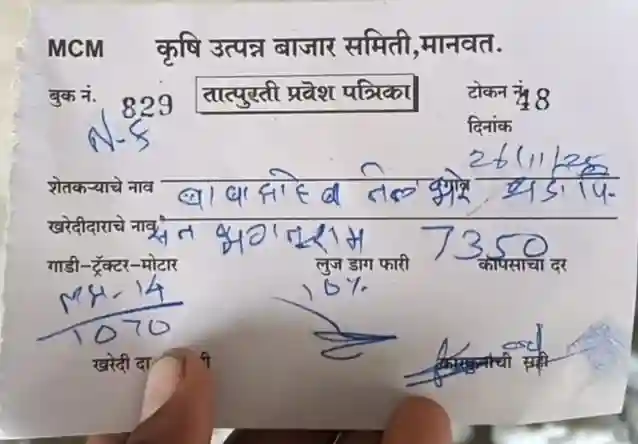 MCM कृषि उत्पन्न बाजार समिती,मानवत.
बुक नं. 829 तात्पुरती प्रवेश पत्रिका टोकन नं. 48
N-6
दिनांक
26/11/25
शेतकऱ्याचे नाव बाबासाहेब
खरेदीदाराचे नाव संत भगतराम 7350
गाडी-ट्रॅक्टर-मोटार लुज डाग फारी कापसाचा दर
MH-14 10%
1070
खरेदी दा